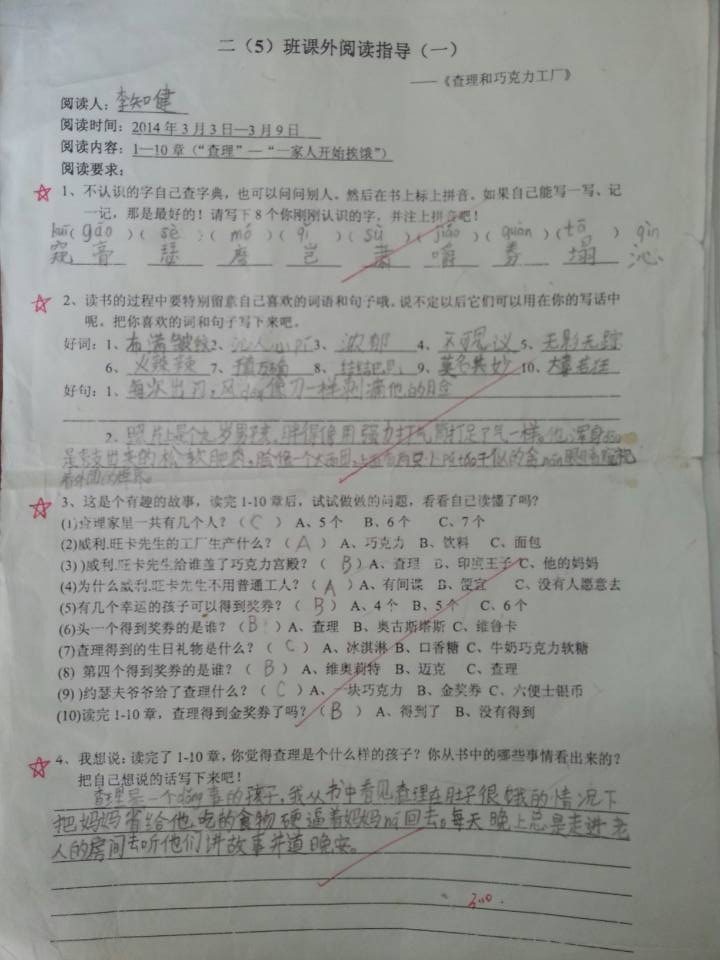 二（5）班课外阅读指导（一）
——《查理和巧克力工厂》
阅读人：李知健
阅读时间：2014年3月3日—3月9日
阅读内容：1—10章（“查理”—“一家人开始挨饿”）
阅读要求：
1、不认识的字自己查字典，也可以问问别人。然后在书上标上拼音。如果自己能写一写、记
一记，那是最好的！请写下8个你刚刚认识的字，并注上拼音吧！
kuī（gāo）（sè）（mó）（qǐ）（sù）（jiáo）（quàn）（tā）qìn
窥 膏 瑟 磨 岂 肃 嚼 券 塌 沁
2、读书的过程中要特别留意自己喜欢的词语和句子哦。说不定以后它们可以用在你的写话中
呢。把你喜欢的词和句子写下来吧。
好词：1、布满皱纹2、沁人心脾3、浓郁 4、不可思议 5、无影无踪
6、火辣辣 7、 8、结结巴巴 9、莫名其妙 10、大喜若狂
好句：1、每次出门，风 像刀一样刺痛他的月佥
2、照片上是个九岁男孩，胖得像用强力打气筒打足了气一样。他浑身
松软肥肉，脸像一个大面团，
3、这是个有趣的故事，读完1-10章后，试试做做的问题，看看自己读懂了吗？
(1)查理家里一共有几个人？（C）A、5个 B、6个 C、7个
(2)威利.旺卡先生的工厂生产什么？（A）A、巧克力 B、饮料 C、面包
(3))威利.旺卡先生给谁盖了巧克力宫殿？（B）A、查理 B、印度王子 C、他的妈妈
(4)为什么威利.旺卡先生不用普通工人？（A）A、有间谍 B、便宜 C、没有人愿意去
(5)有几个幸运的孩子可以得到奖券？（B）A、4个 B、5个 C、6个
(6)头一个得到奖券的是谁？（B）A、查理 B、奥古斯塔斯 C、维鲁卡
(7)查理得到的生日礼物是什么？（C）A、冰淇淋 B、口香糖 C、牛奶巧克力软糖
(8) 第四个得到奖券的是谁？（B）A、维奥莉特 B、迈克 C、查理
(9))约瑟夫爷爷给了查理什么？（C）A、一块巧克力 B、金奖券 C、六便士银币
(10)读完1-10章，查理得到金奖券了吗？（B）A、得到了 B、没有得到
4、我想说：读完了1-10章，你觉得查理是个什么样的孩子？你从书中的哪些事情看出来的？
把自己想说的话写下来吧！
查理是一个dǒng事的孩子，我从书中看见查理在肚子很饿的情况下
把妈妈省给他吃的食物硬逼着妈妈ná回去。每天晚上总是走进老
人的房间去听他们讲故事并道晚安。